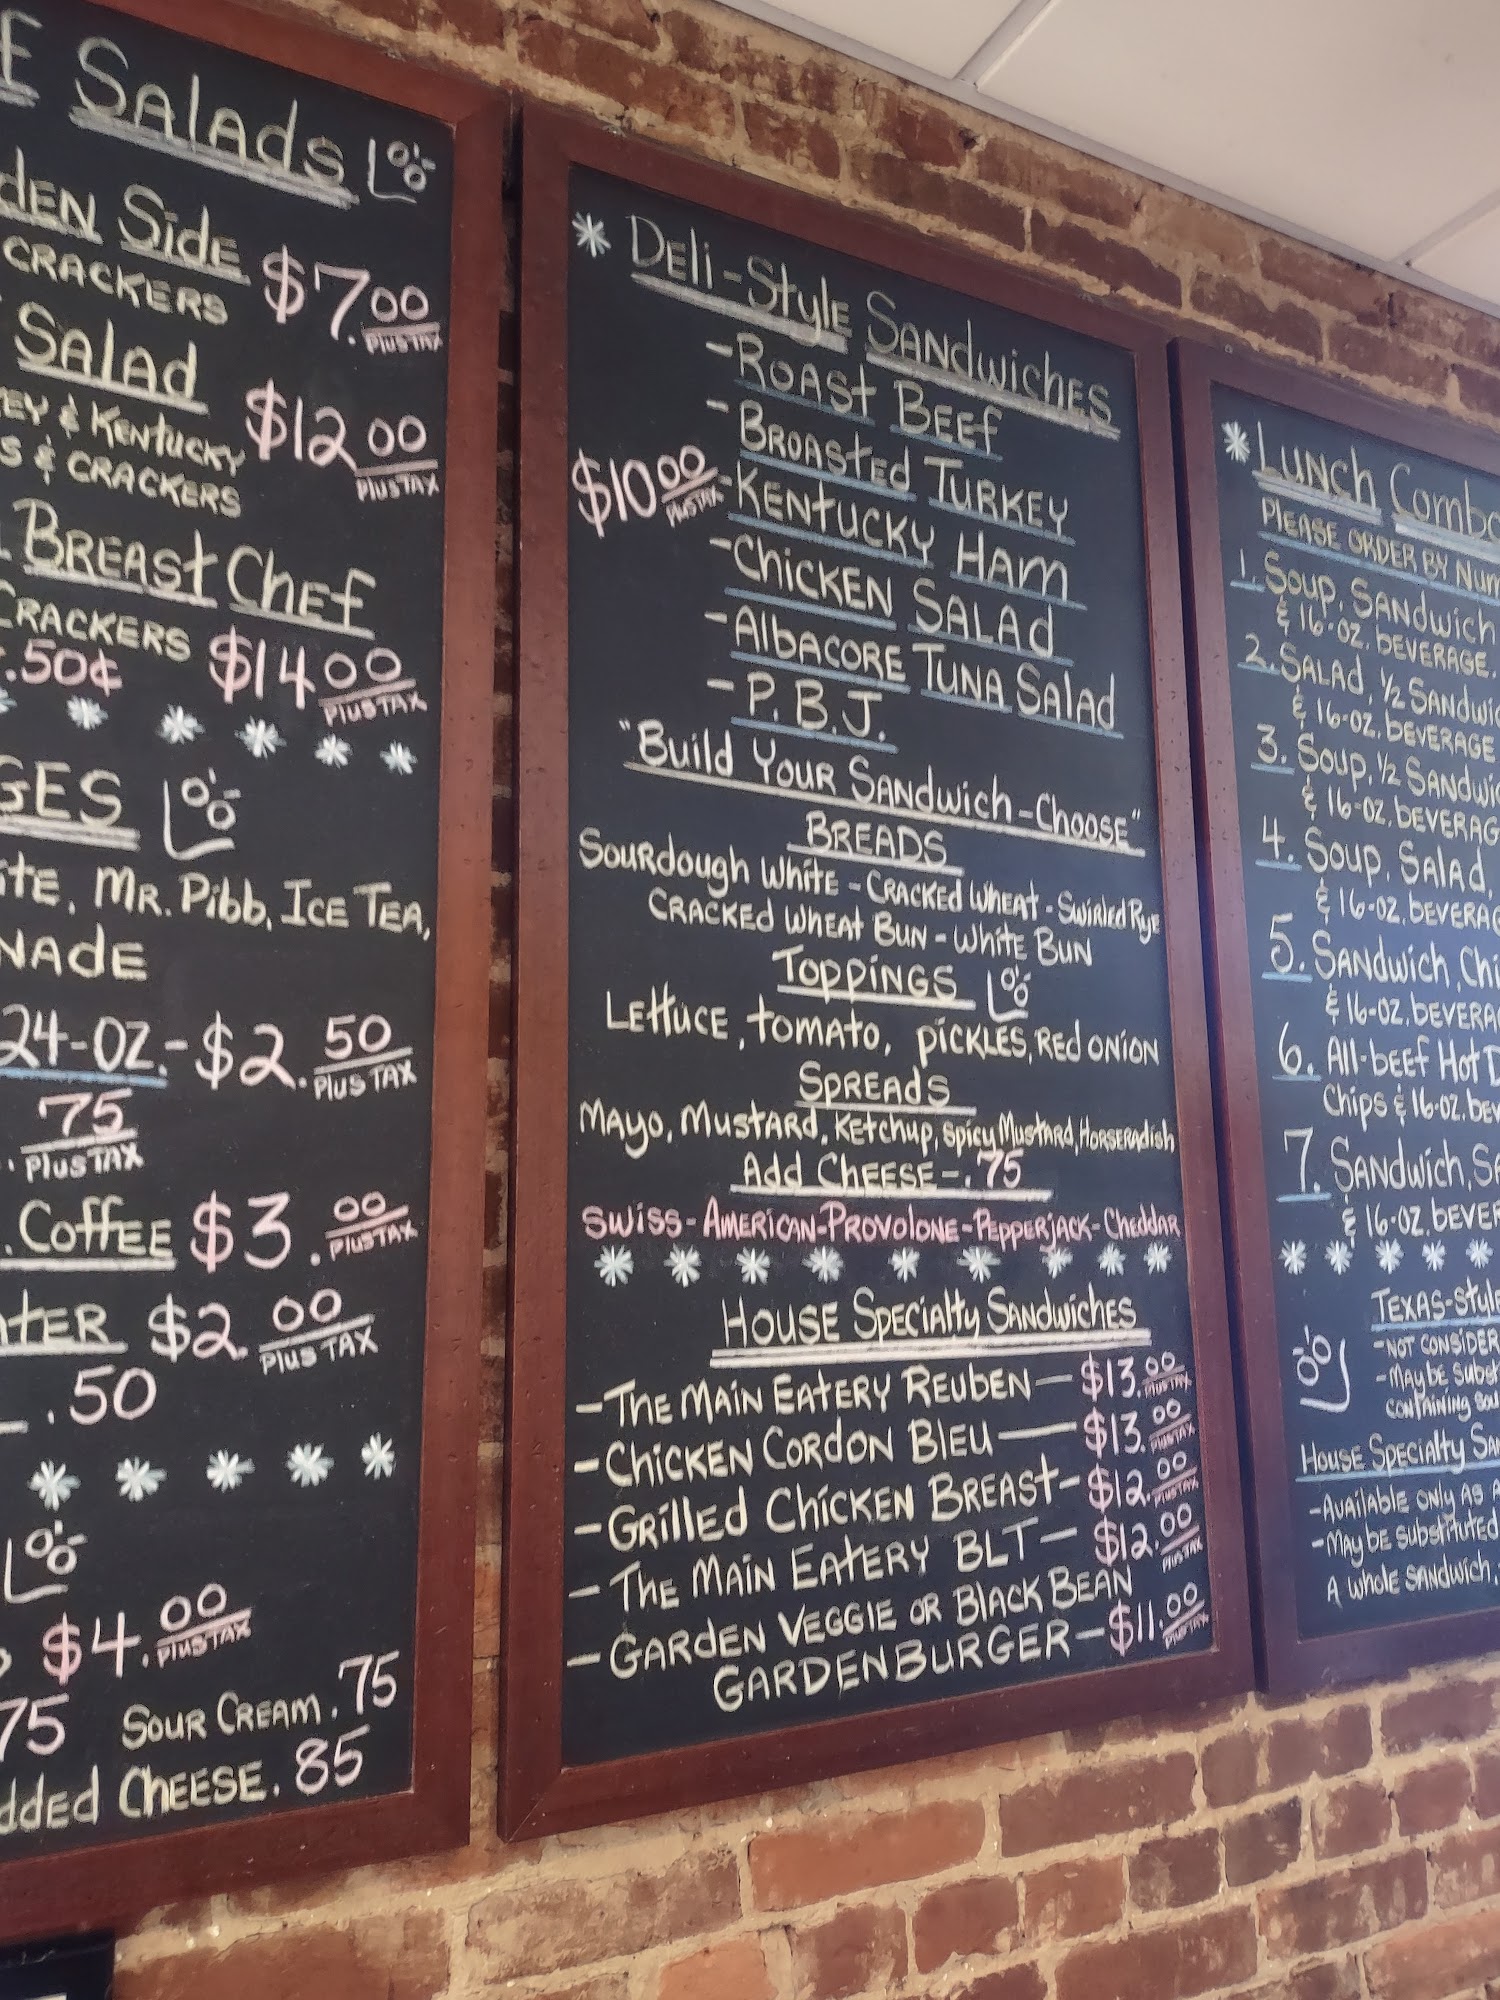 Salads
Side
CRACKERS
$7.00
Plus TAX
Salad
& KENTUCKY
& CRACKERS
$12.00
Plus TAX
BREAST CHEF
CRACKERS
.50¢
$14.00
Plus TAX
MR. Pibb, ICE TEA,
24-OZ. - $2.50
Plus TAX
75
Plus TAX
COFFEE $3.00
Plus TAX
$2.00
Plus TAX
.50
$4.00
Plus TAX
75 SOUR CREAM .75
CHEESE .85
* DELI-STYLE SANDWICHES
- ROAST BEEF
- BROASTED TURKEY
$10.00 Plus TAX - KENTUCKY HAM
- CHICKEN SALAD
- AlbACORE TUNA SAlAd
- P.B.J.
"BUild YOUR SANdwich - Choose"
BREADS
SOURdough WHITE - CRACKED WHEAT - SWIRLED RYE
CRACKED WHEAT BUN - WHITE BUN
TOPPINGS
LETTUCE, TOMATO, PICKLES, REd ONION
SPREAdS
MAYO, MUSTARd, KETchup, Spicy MUSTARd, HORSERAdish
Add CHEESE - .75
SWISS - AMERICAN - PROVOLONE - PEPPERJACK - CheddAR
HOUSE SPECIALTY SANDWICHES
- THE MAIN EATERY REUBEN - $13.00 Plus TAX
- CHICKEN CORDON BLEU - $13.00 Plus TAX
- GRILLED CHICKEN BREAST - $12.00 Plus TAX
- THE MAIN EATERY BLT - $12.00 Plus TAX
- GARDEN VEGGIE OR BLACK BEAN
GARDENBURGER - $11.00 Plus TAX
* LUNCH
PLEASE ORDER BY
1. SOUP, SANDWICH
& 16-OZ. BEVERAGE.
2. SALAD, 1/2
& 16-OZ. BEVERAGE
3. SOUP, 1/2
& 16-OZ.
4. SOUP, SALAD,
& 16-OZ.
5. SANDWICH,
& 16-OZ.
6. All-bEEF HOT
CHIPS & 16-OZ.
7. SANDWICH,
& 16-OZ.
- NOT
- MAY BE
CONTAINING
HOUSE SPECIALTY
- AVAILABLE ONLY AS
- MAY BE SUBSTITUTED
A WHOLE SANDWICH,